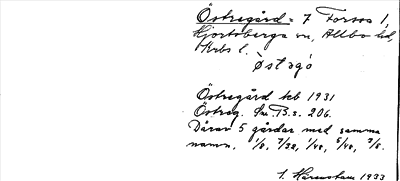 Östregård = 7 Forsos 1,
Hjortsberga sn, Allbo hd,
Krbs l.
Östagó
Östregård tcb 1931
Östreg. Sn. B. s. 206.
Därav 5 gårdar med samma
namn, 1/6, 7/32, 1/48, 5/48, 3/8.
1933